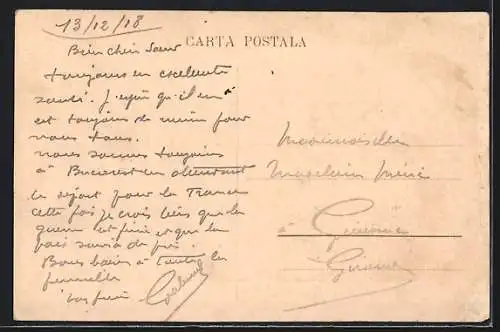 13/12/18
CARTA POSTALA
Bien chere Soeur
toujours en excellente
santé. J'espère qu'il en
est toujours de même pour
vous tous.
nous sommes toujours
à Bucarest en attendant
le départ pour la France
cette fois je crois bien que la
guerre est finie et que la
paix suivra de près.
Bons baisers à toute la
famille
Mademoiselle
Madeleine
à
Gironde